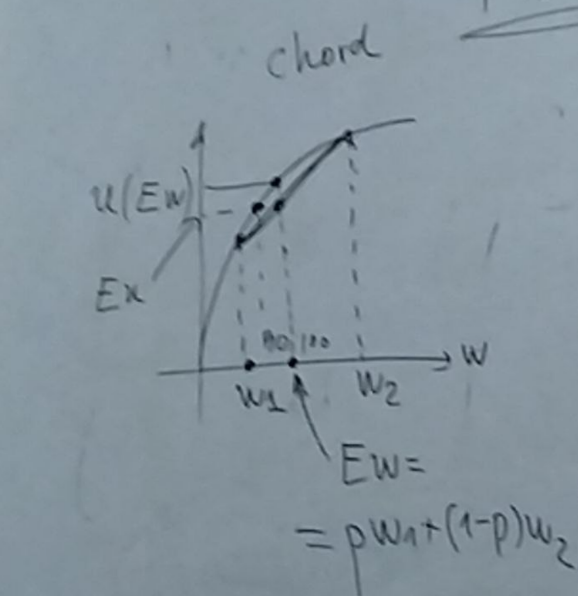 Chord
u(Ew)
Eu
90 100
w
w1
w2
Ew=
= pw1+(1-p)w2